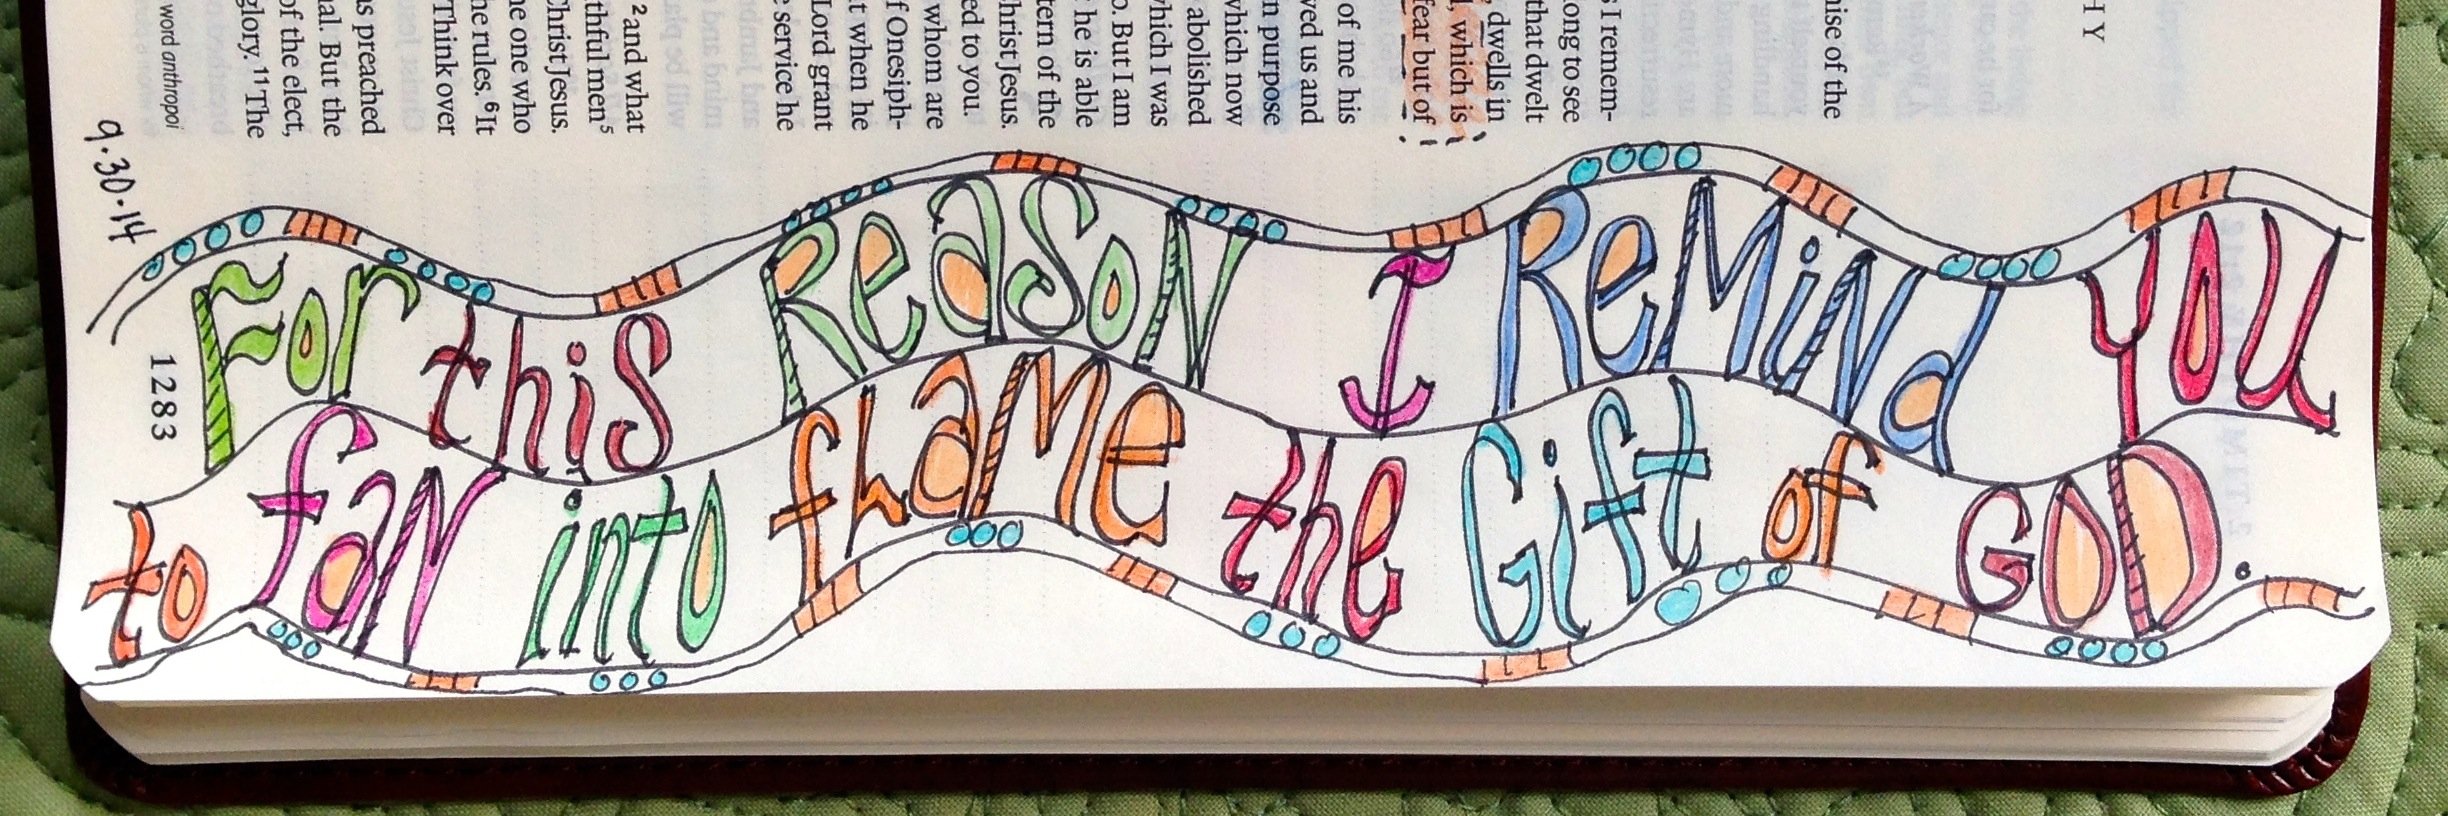 For this Reason I ReMiNd you
to faN into fLaMe the Gift of GOD.
9.30.14
HY
ise of the
s I remem-
ong to see
that dwelt
dwells in
, which is
fear but of
of me his
ved us and
n purpose
which now
abolished
which I was
o. But I am
he is able
tern of the
hrist Jesus.
ed to you.
whom are
f Onesiph-
t when he
Lord grant
e service he
2 and what
thful men5
Christ Jesus.
ne one who
he rules. 6It
Think over
as preached
nal. But the
of the elect,
glory. 11The
word anthropoi
1283